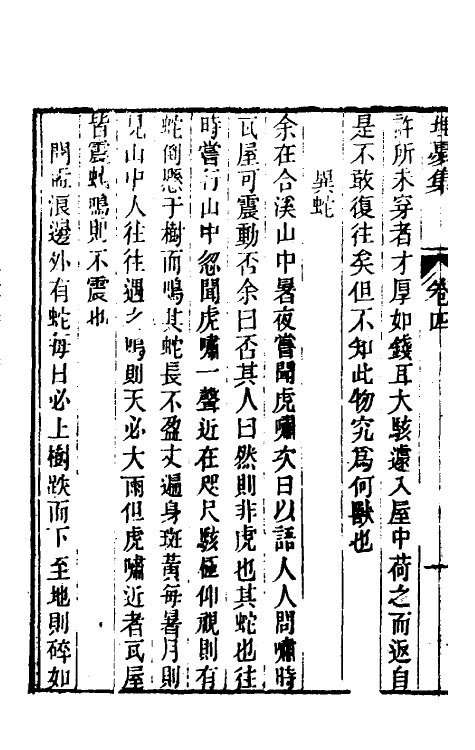 埋憂集 卷四 十
許所未穿者才厚如錢耳大駭遽入屋中荷之而返自
是不敢復往矣但不知此物究爲何獸也
異蛇
余在合溪山中暑夜嘗聞虎嘯次日以語人人問嘯時
瓦屋可震動否余曰否其人曰然則非虎也其蛇也往
時嘗行山中忽聞虎嘯一聲近在咫尺駭極仰視則有
蛇倒懸于樹而鳴其蛇長不盈丈遍身斑黃每暑月則
見山中人往往遇之鳴則天必大雨但虎嘯近者瓦屋
皆震蛇鳴則不震也
聞孟浪邊外有蛇每日必上樹跌而下至地則碎如